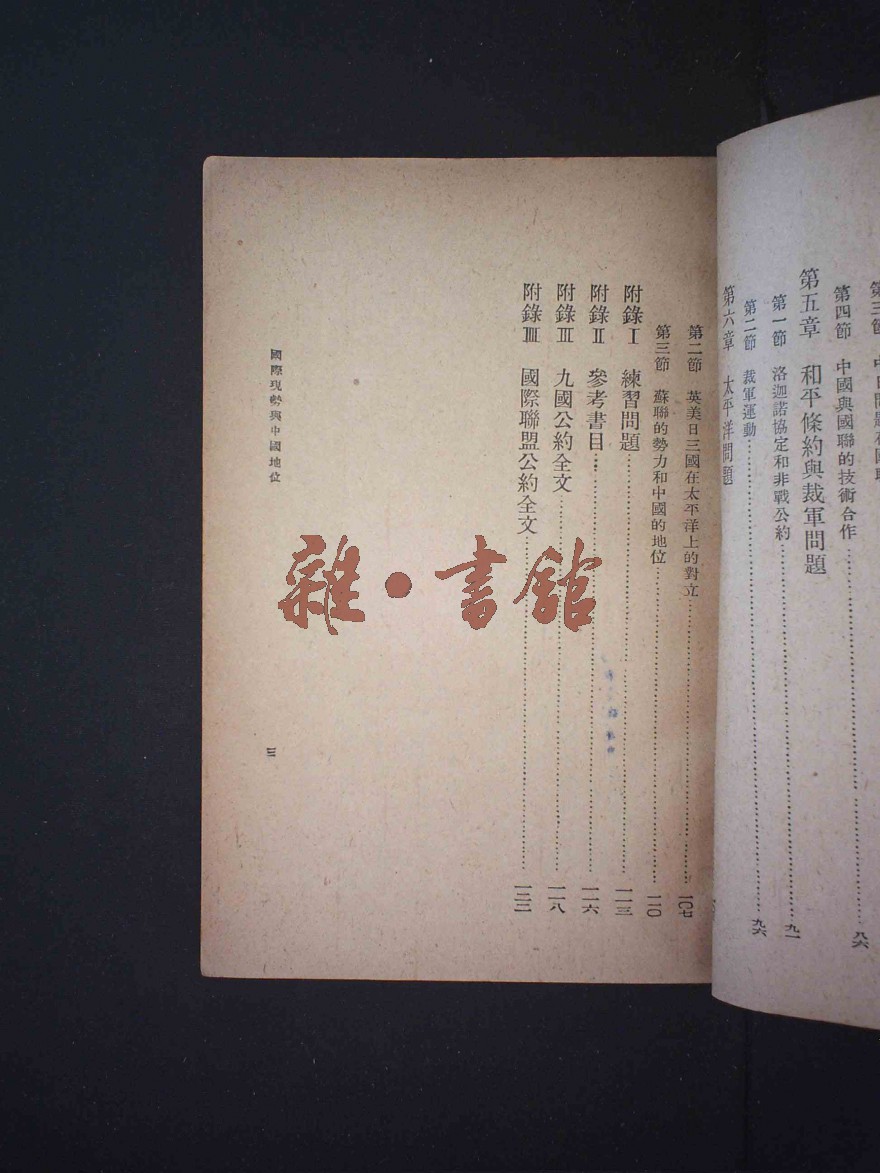 第四節　中國與國聯的技術合作……八六
第五章　和平條約與裁軍問題
第一節　洛迦諾協定和非戰公約……九一
第二節　裁軍運動……九六
第六章　太平洋問題
第二節　英美日三國在太平洋上的對立……一〇七
第三節　蘇聯的勢力和中國的地位……一一〇
附錄Ⅰ　練習問題……一一三
附錄Ⅱ　參考書目……一一六
附錄Ⅲ　九國公約全文……一一八
附錄IIII　國際聯盟公約全文……一二二
國際現勢與中國地位
三
雜·書館